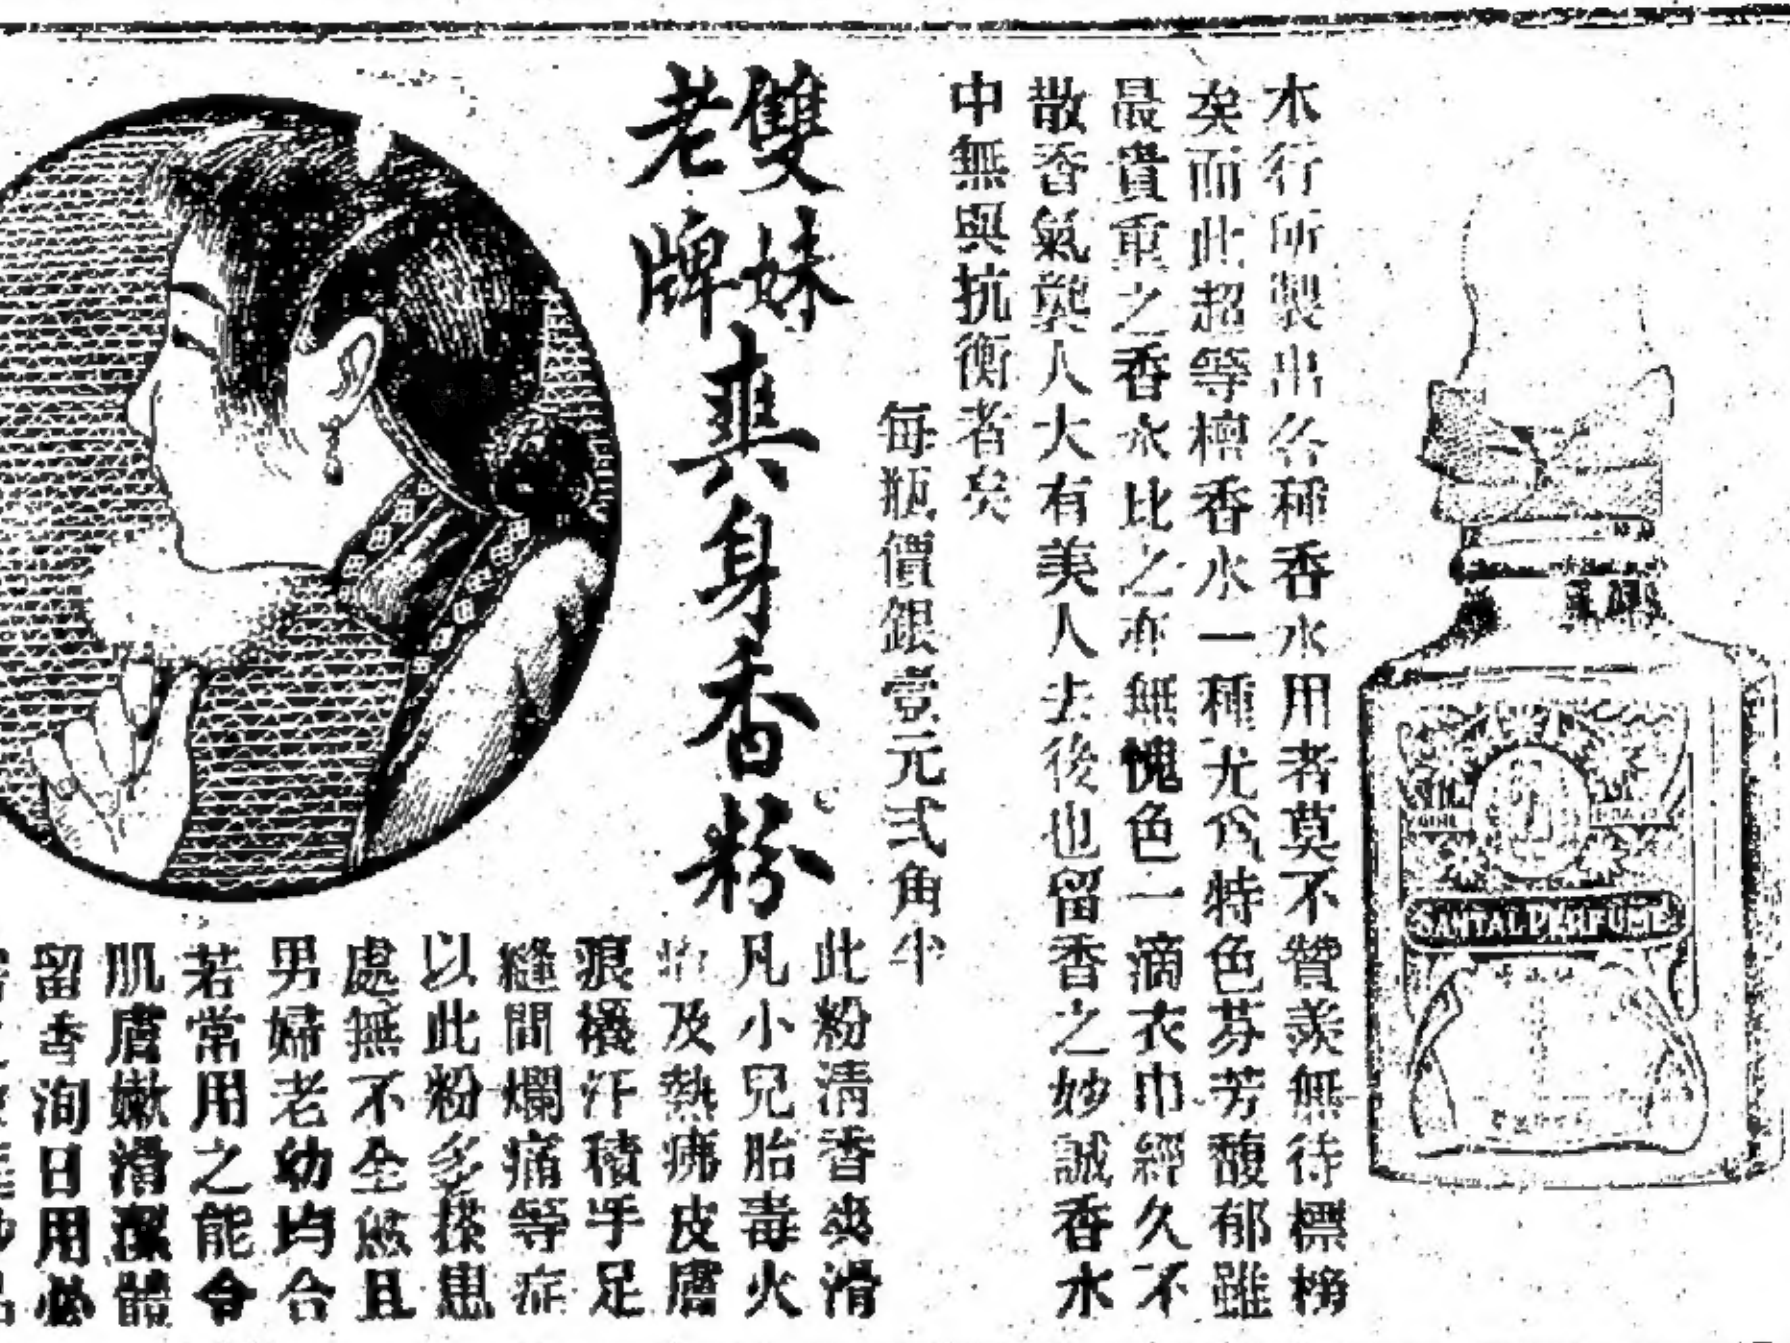 本行所製出各種香水用者莫不贊羨無待標榜
矣而此超等檀香水一種尤為特色芬芳馥郁雖
最貴重之香水比之亦無愧色一滴衣巾經久不
散香氣襲人大有美人去後也留香之妙誠香水
中無與抗衡者矣
每瓶價銀壹元弍角半
雙妹
老牌
爽身香粉
此粉清香爽滑
凡小兒胎毒火
及熱疿皮膚
痕癢汗積手足
縫間爛痛等症
以此粉多搽患
處無不全愈且
男婦老幼均合
若常用之能令
肌膚嫩滑潔體
留香洵日用必
SANTAL PERFUME